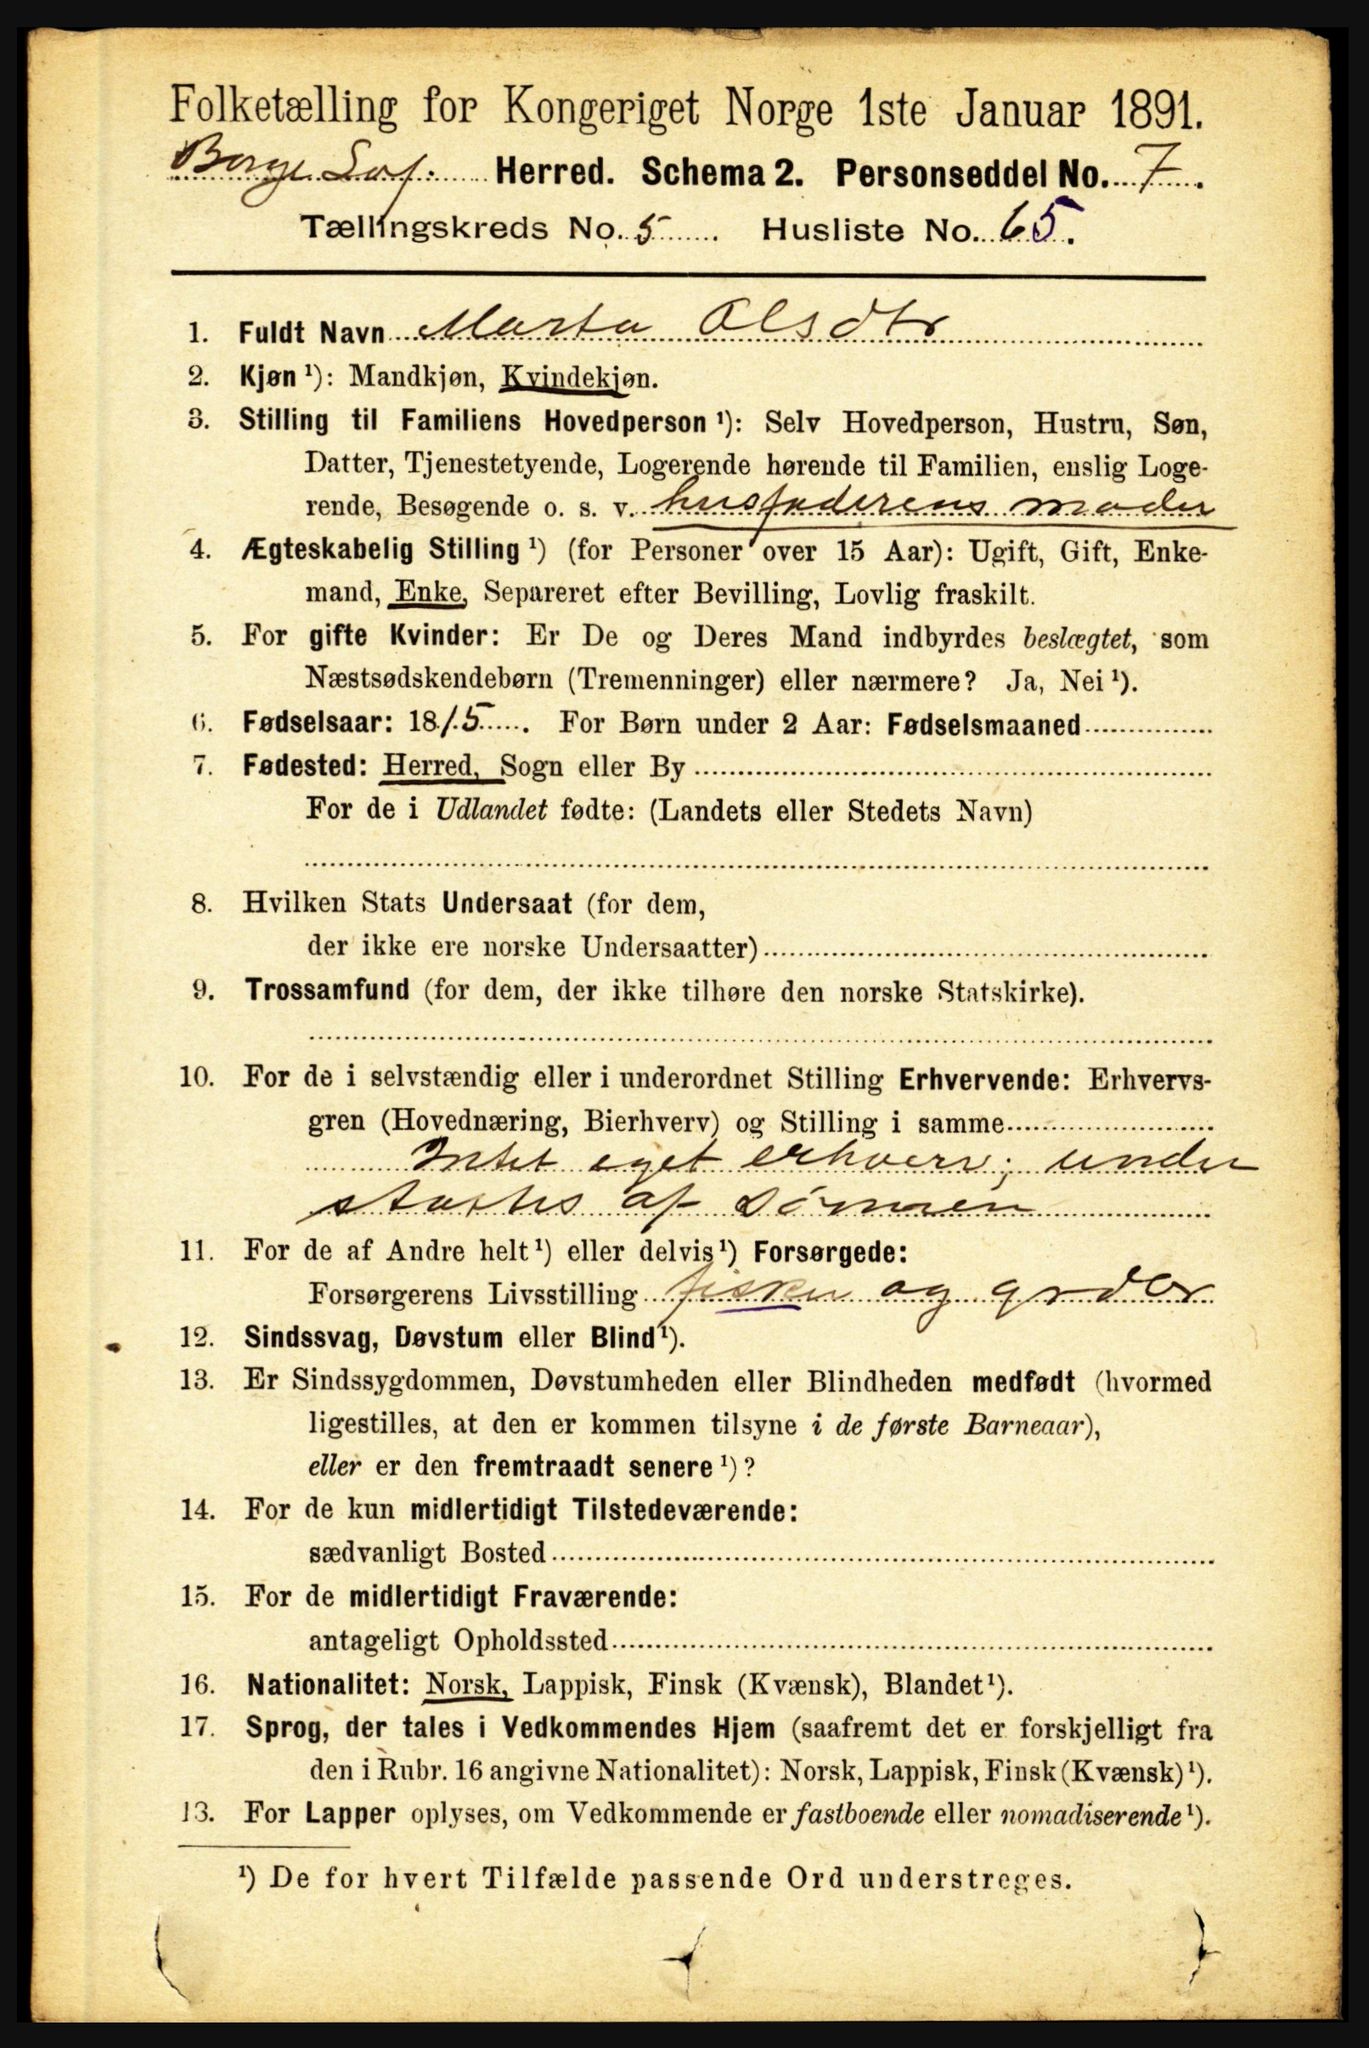 Folketælling for Kongeriget Norge 1ste Januar 1891.
Borge Lof. Herred. Schema 2. Personseddel No. 7.
Tællingskreds No. 5. Husliste No. 65.
1. Fuldt Navn Marta Olsdtr
2. Kjøn ¹): Mandkjøn, Kvindekjøn.
3. Stilling til Familiens Hovedperson ¹): Selv Hovedperson, Hustru, Søn,
Datter, Tjenestetyende, Logerende hørende til Familien, enslig Loge-
rende, Besøgende o. s. v. husfaderens moder
4. Ægteskabelig Stilling ¹) (for Personer over 15 Aar): Ugift, Gift, Enke-
mand, Enke, Separeret efter Bevilling, Lovlig fraskilt.
5. For gifte Kvinder: Er De og Deres Mand indbyrdes beslægtet, som
Næstsødskendebørn (Tremenninger) eller nærmere? Ja, Nei ¹).
6. Fødselsaar: 1815. For Børn under 2 Aar: Fødselsmaaned
7. Fødested: Herred, Sogn eller By
For de i Udlandet fødte: (Landets eller Stedets Navn)
8. Hvilken Stats Undersaat (for dem,
der ikke ere norske Undersaatter)
9. Trossamfund (for dem, der ikke tilhøre den norske Statskirke).
10. For de i selvstændig eller i underordnet Stilling Erhvervende: Erhvervs-
gren (Hovednæring, Bierhverv) og Stilling i samme
Intet eget erhverv; under
støttes af sønnen
11. For de af Andre helt ¹) eller delvis ¹) Forsørgede:
Forsørgerens Livsstilling fisker og grdbr
12. Sindssvag, Døvstum eller Blind ¹).
13. Er Sindssygdommen, Døvstumheden eller Blindheden medfødt (hvormed
ligestilles, at den er kommen tilsyne i de første Barneaar),
eller er den fremtraadt senere ¹)?
14. For de kun midlertidigt Tilstedeværende:
sædvanligt Bosted
15. For de midlertidigt Fraværende:
antageligt Opholdssted
16. Nationalitet: Norsk, Lappisk, Finsk (Kvænsk), Blandet ¹).
17. Sprog, der tales i Vedkommendes Hjem (saafremt det er forskjelligt fra
den i Rubr. 16 angivne Nationalitet): Norsk, Lappisk, Finsk (Kvænsk) ¹).
13. For Lapper oplyses, om Vedkommende er fastboende eller nomadiserende ¹).
¹) De for hvert Tilfælde passende Ord understreges.